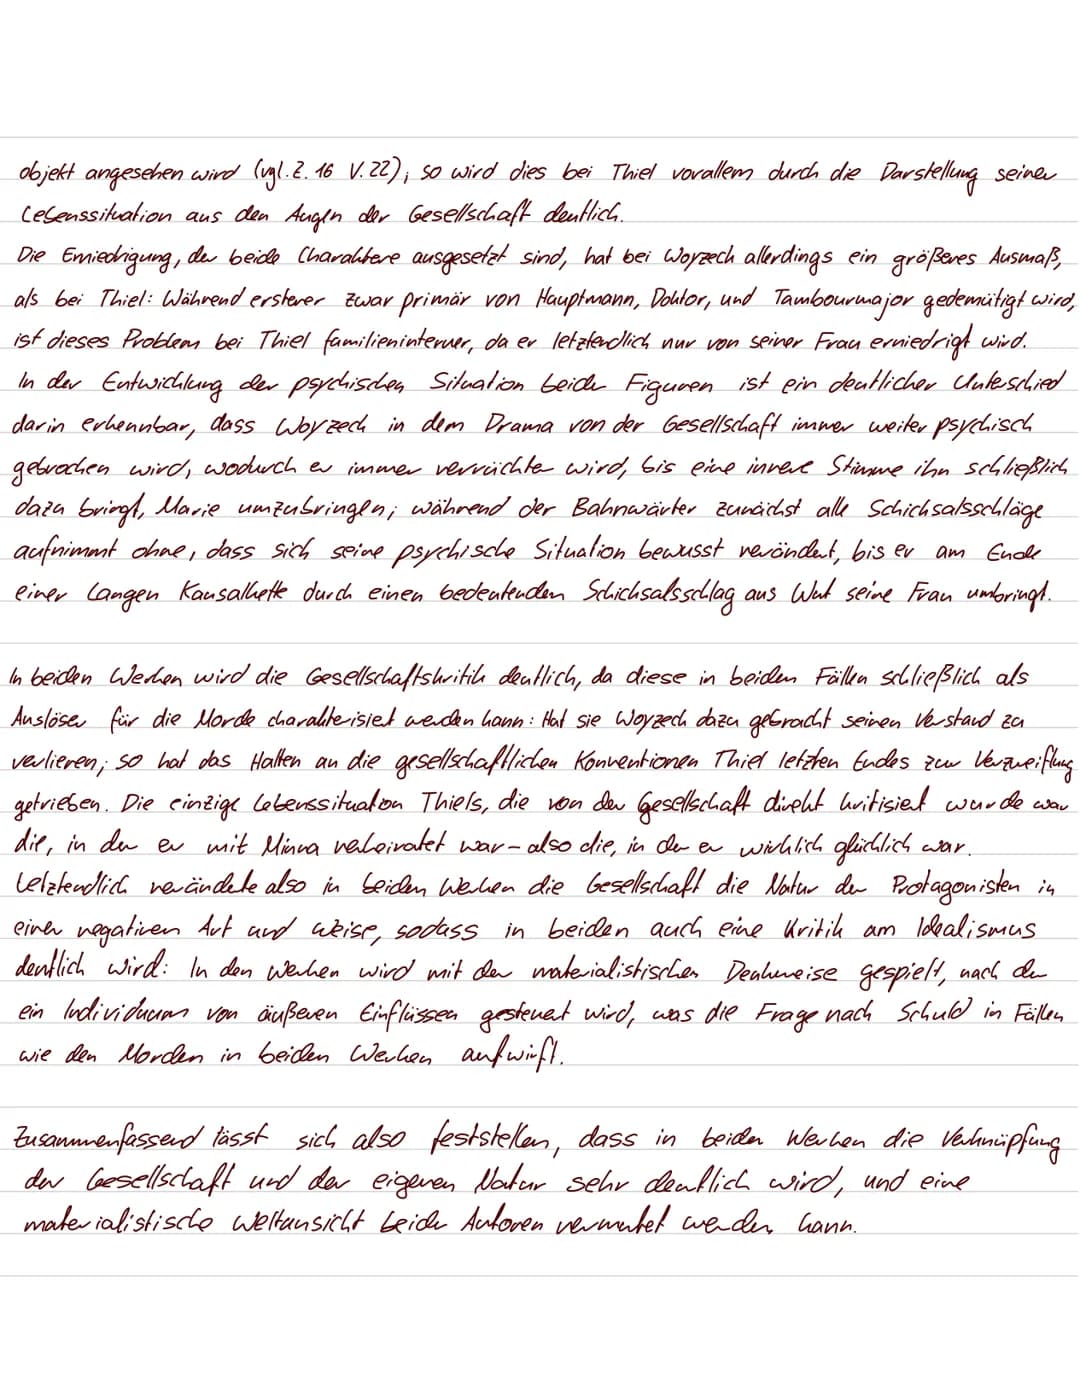 objekt angesehen wird (vgl. Z. 16 V. 22), so wird dies bei Thiel vorallem durch die Darstellung seiner
Lebenssituation aus den Augen der Gesellschaft deutlich.
Die Erniedrigung, der beide Charaktere ausgesetzt sind, hat bei Woyzeck allerdings ein größeres Ausmaß,
als bei Thiel: Während ersterer zwar primär von Hauptmann, Doktor, und Tambourmajor gedemütigt wird,
ist dieses Problem bei Thiel familieninterner, da er letztendlich nur von seiner Frau erniedrigt wird.
In der Entwicklung der psychischen Situation beider Figuren ist ein deutlicher Unterschied
darin erkennbar, dass Woyzeck in dem Drama von der Gesellschaft immer weiter psychisch
gebrochen wird, wodurch er immer verrückter wird, bis eine innere Stimme ihn schließlich
dazu bringt, Marie umzubringen; während der Bahnwärter zunächst alle Schicksalsschläge
aufnimmt ohne, dass sich seine psychische Situation bewusst verändert, bis er am Ende
einer langen Kausalkette durch einen bedeutenden Schicksalsschlag aus Wut seine Frau umbringt.
In beiden Werken wird die Gesellschaftskritik deutlich, da diese in beiden Fällen schließlich als
Auslöser für die Morde charakterisiert werden kann: Hat sie Woyzeck dazu gebracht seinen Verstand zu
verlieren, so hat das Halten an die gesellschaftlichen Konventionen Thiel letzten Endes zur Verzweiflung
getrieben. Die einzige Lebenssituation Thiels, die von der Gesellschaft direkt kritisiert wurde war
die, in der er mit Minna verheiratet war – also die, in der er wirklich glücklich war.
Letztendlich veränderte also in beiden Werken die Gesellschaft die Natur der Protagonisten in
einer negativen Art und Weise, sodass in beiden auch eine Kritik am Idealismus
deutlich wird: In den Werken wird mit der materialistischen Denkweise gespielt, nach der
ein Individuum von äußeren Einflüssen gesteuert wird, was die Frage nach Schuld in Fällen
wie den Morden in beiden Werken aufwirft.
Zusammenfassend lässt sich also feststellen, dass in beiden Werken die Verknüpfung
der Gesellschaft und der eigenen Natur sehr deutlich wird, und eine
materialistische Weltansicht beider Autoren vermutet werden kann.